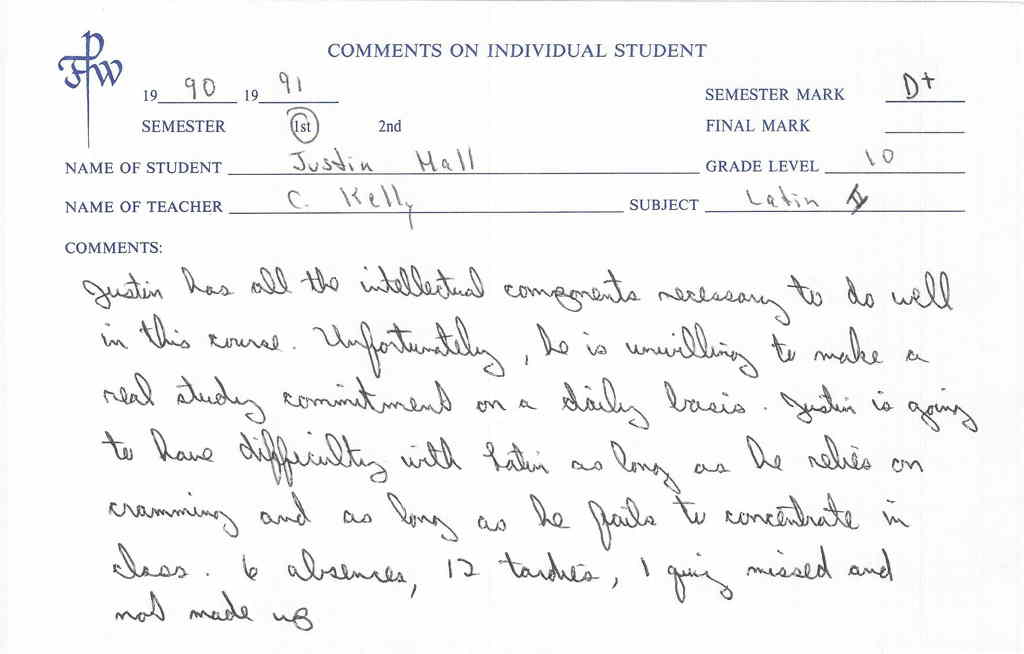 FPW
COMMENTS ON INDIVIDUAL STUDENT
19 90 19 91
SEMESTER MARK D+
SEMESTER 1st 2nd
FINAL MARK
NAME OF STUDENT Justin Hall
GRADE LEVEL 10
NAME OF TEACHER C. Kelly
SUBJECT Latin II
COMMENTS:
Justin has all the intellectual components necessary to do well
in this course. Unfortunately, he is unwilling to make a
real study commitment on a daily basis. Justin is going
to have difficulty with Latin as long as he relies on
cramming and as long as he fails to concentrate in
class. 6 absences, 12 tardies, 1 quiz missed and
not made up